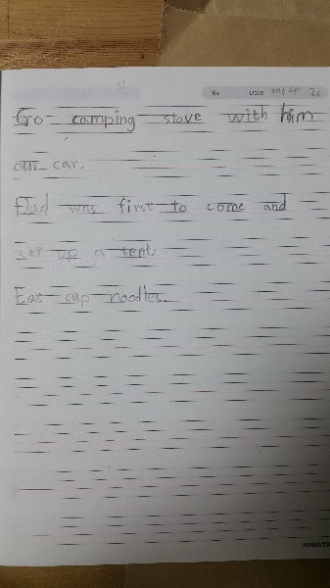 No. Date
Go camping stove with him
our car.
Dad was first to come and
set up a tent.
Eat cup noodles.